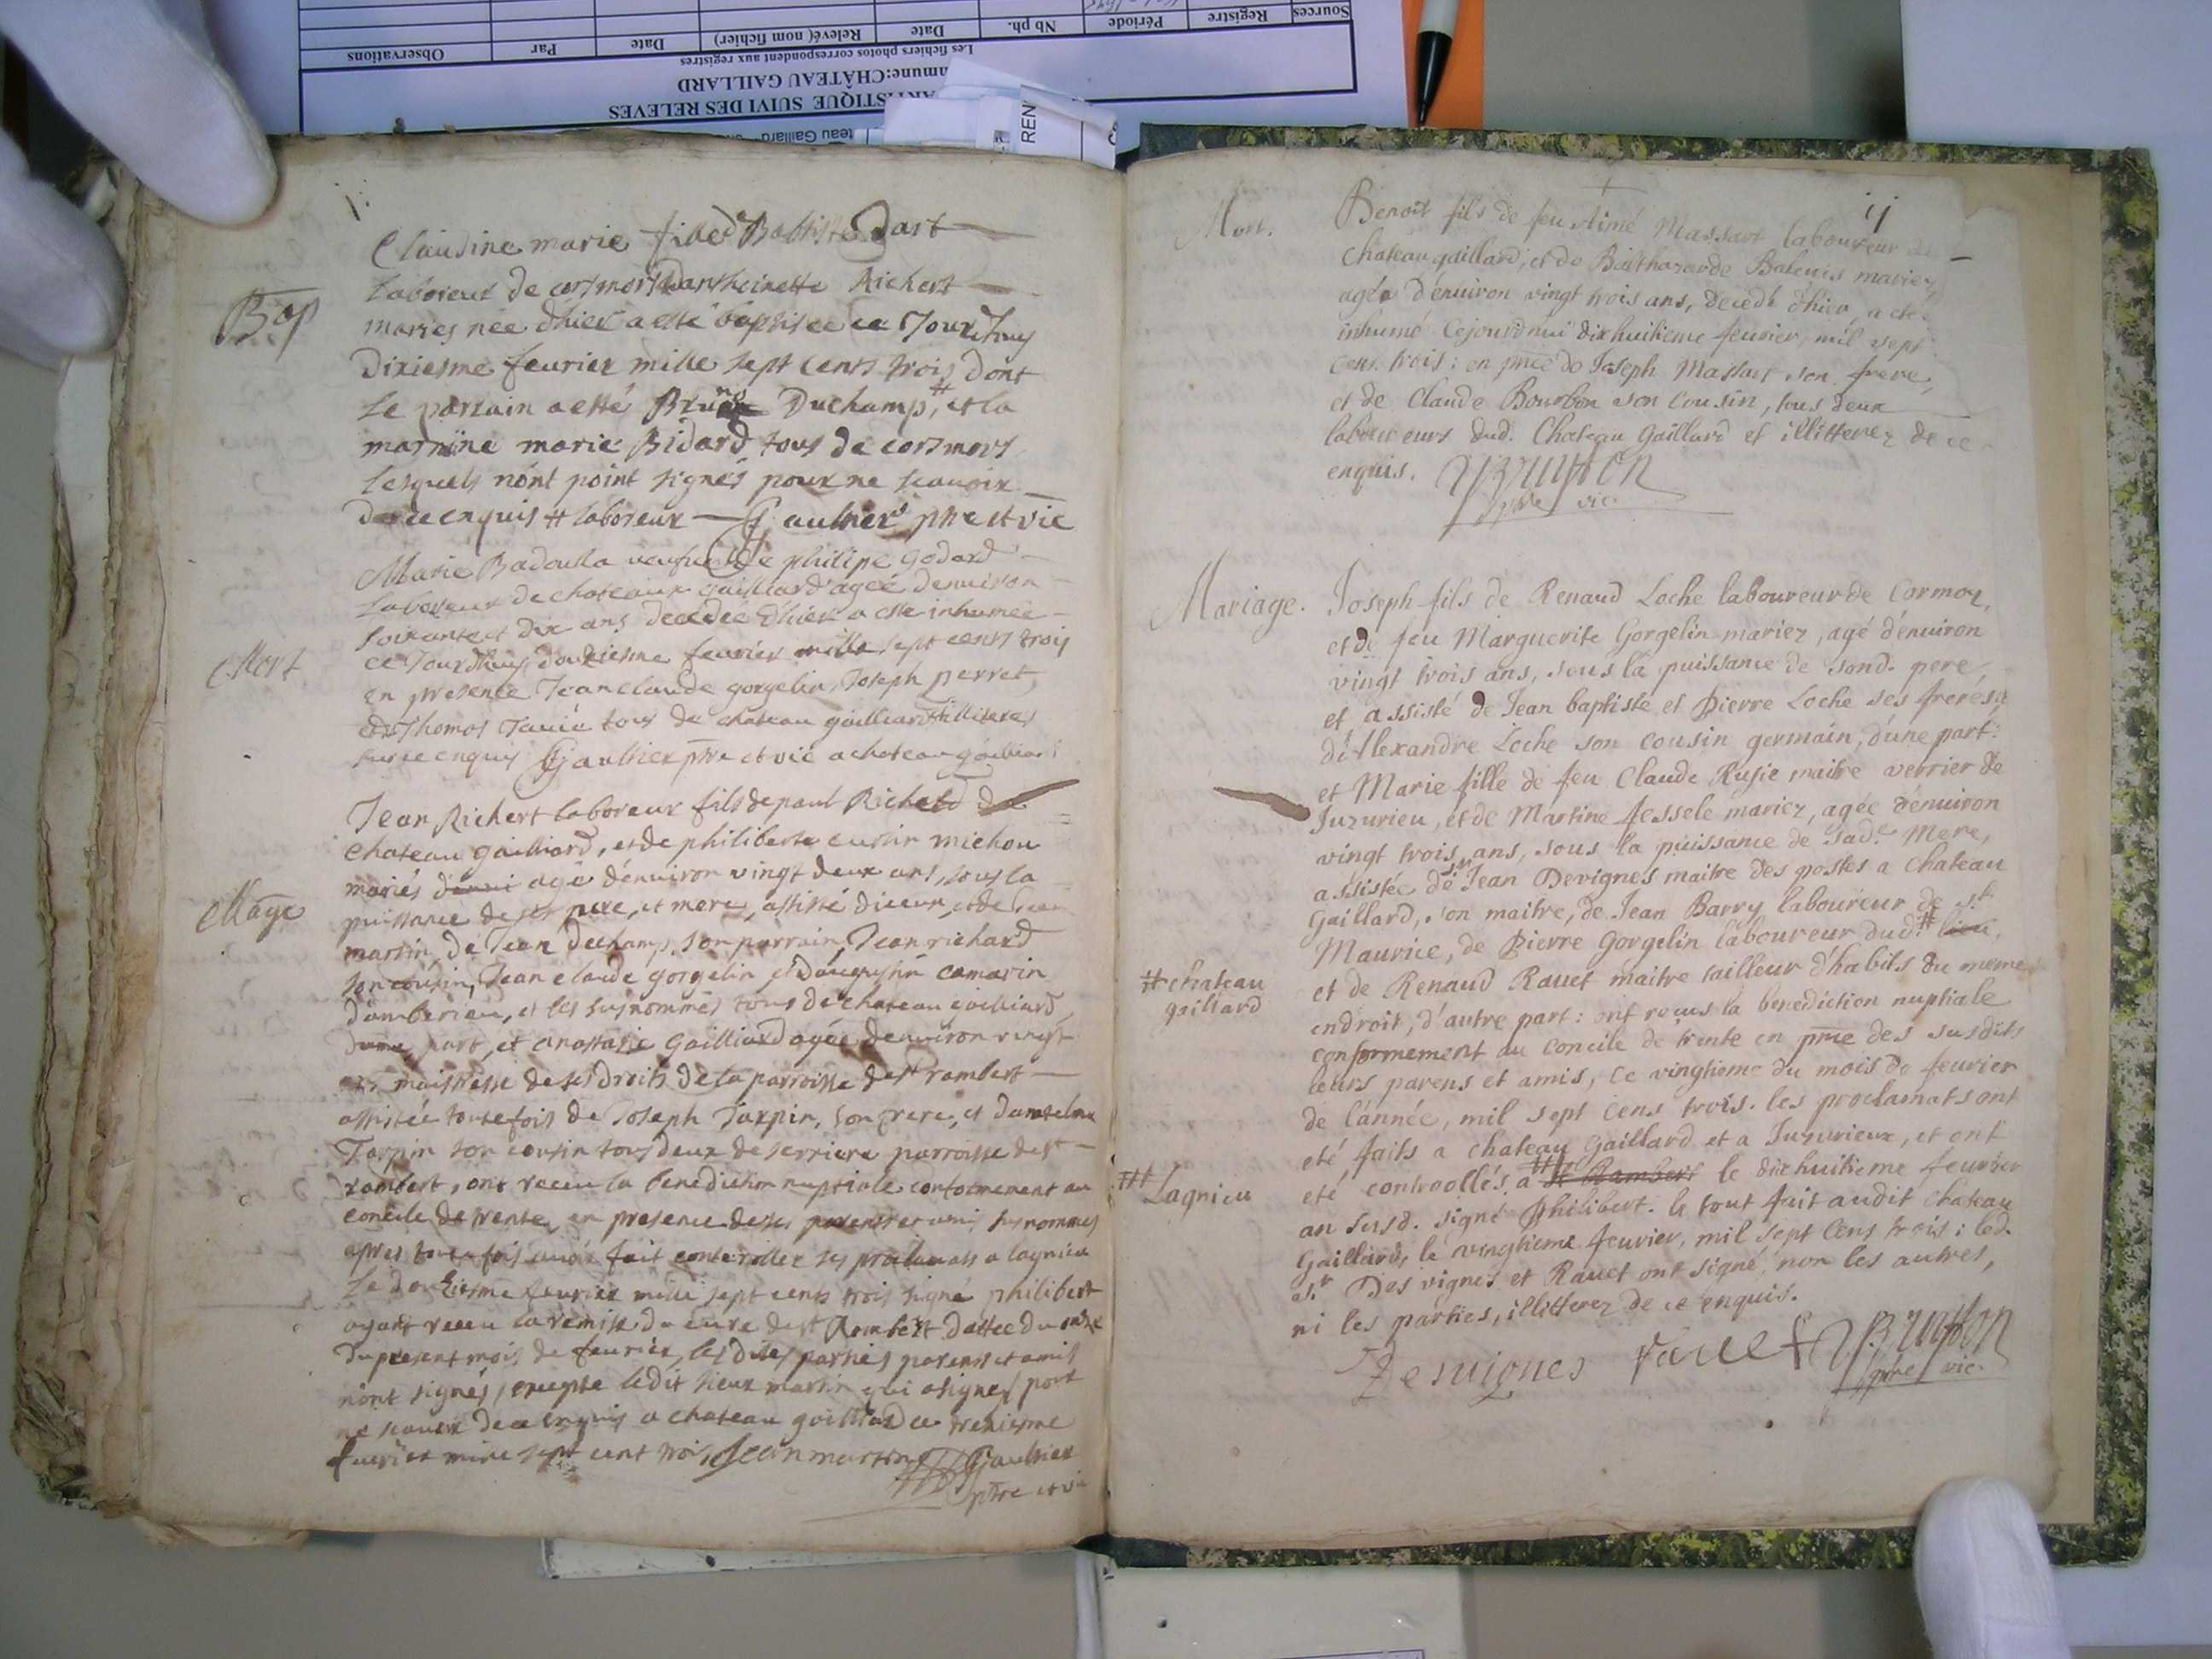 Sources
Registre
Période
Nb ph.
Date
Relevé( nom fichier)
Date
Par
Observations
Les fichiers photos correspondent aux registres
mmune:CHÂTEAU GAILLARD
SUIVI DES RELEVES
teau Gaillard
REN
Claudine marie fille Baptiste Dart
Laboreur de cormor Richert
Bap
maries née d'hier a esté baptisée ce Jourdhuy
Dixiesme feurier mille sept cents trois dont
Le parrain a esté Duchamp,# et la
marraine marie Bidard tous de cormors
Lesquels n'ont point signés pour ne scauoir
de ce enquis # laboreur Gaultier ptre et vic
Marie Badoulla veufue de philipe Godard
Laboreur de chateaux gaillard agee denuiron
soixante et dix ans decedée d'hier a este inhumée
Mort
ce Jourdhuy douziesme feurier mille sept cents trois
en presence Jean claude gorgelin, Joseph perret,
et Thomas tous de chateau gailliard illiteres
sur ce enquis Gaultier ptre et vic a chateau gailliard
Jean Richert laboreur fils de paul Richard de
chateau gailliard, et de philiberte michon
mariés agé d'enuiron vingt deux ans, sous la
Mage
puissance de ses pere, et mere, assisté d'iceux, et de
martin, de Jean dechamp son parrain, Jean richard
son cousin, Jean claude gorgelin et d'augustin camarin
d'amberieu, et les susnommés tous de chateau gailliard
dune part, et anastasie Gailliard agée denuiron vingt
maistresse de ses droits de la parroisse de st rambert
assistée toutefois de Joseph Tarpin, son frere, et
Tarpin son cousin tous deux de serriere parroisse de st
rambert, ont receu la benediction nuptiale conformement au
concile de trente, en presence de ses parents et amis susnommes
apres toutefois auoir fait conteroller ses proclamats a lagnieu
Le douziesme feurier mille sept cents trois signé philibert
ayant receu la remise du cure de st Rambert dattée du onze
du present mois de feurier, les dites parties parents et amis
n'ont signés, excepte ledit sieur martin qui a signé, pour
ne scauoir de ce enquis a chateau gailliard ce treziesme
feurier mille sept cent trois Jean martin Gaultier
ptre et vic
ij
Mort.
Benoit fils de feu Aimé Massart laboureur de
Chateau gaillard, et de Balthazarde mariez
agée d'enuiron vingt trois ans, decedé d'hier, a eté
inhumé cejourd'hui dixhuitieme feurier, mil sept
cens trois: en pnce de Joseph Massart son frere,
et de Claude Bourbon son cousin, tous deux
laboureurs dud. Chateau Gaillard et illitterez de ce
enquis.
ptre vic.
Mariage.
Joseph fils de Renaud Loche laboureur de Cormoz,
et de feu Marguerite Gorgelin mariez, agé d'enuiron
vingt trois ans, sous la puissance de sond. pere
et assisté de Jean baptiste et Pierre Loche ses freres,
d'Alexandre Loche son cousin germain, d'une part:
et Marie fille de feu Claude Rusie maitre verrier de
Juzurieu, et de Martine fessele mariez, agée d'enuiron
vingt trois ans, sous la puissance de sade. Mere,
assistée de Jean Devignes maitre des postes a Chateau
Gaillard, son maitre, de Jean Barry laboureur de st
Maurice, de Pierre Gorgelin laboureur dud. # lieu,
# chateau
gaillard
et de Renaud Rauet maitre tailleur d'habits du meme
endroit, d'autre part: ont reçus la benediction nuptiale
conformement au concile de trente en pnce des susdits
leurs parens et amis, ce vingtieme du mois de feurier
de l'année, mil sept cens trois. les proclamats ont
eté faits a chateau Gaillard et a Juzurieux, et ont
eté controollés a ## st Rambert le dixhuitieme feurier
## Lagnieu
an susd. signé Philibert. le tout fait audit chateau
Gaillard, le vingtieme feurier, mil sept cens trois: led.
sr. Des vignes et Rauet ont signé, non les autres,
ni les parties, illitterez de ce enquis.
Desuignes rauet
ptre vic.